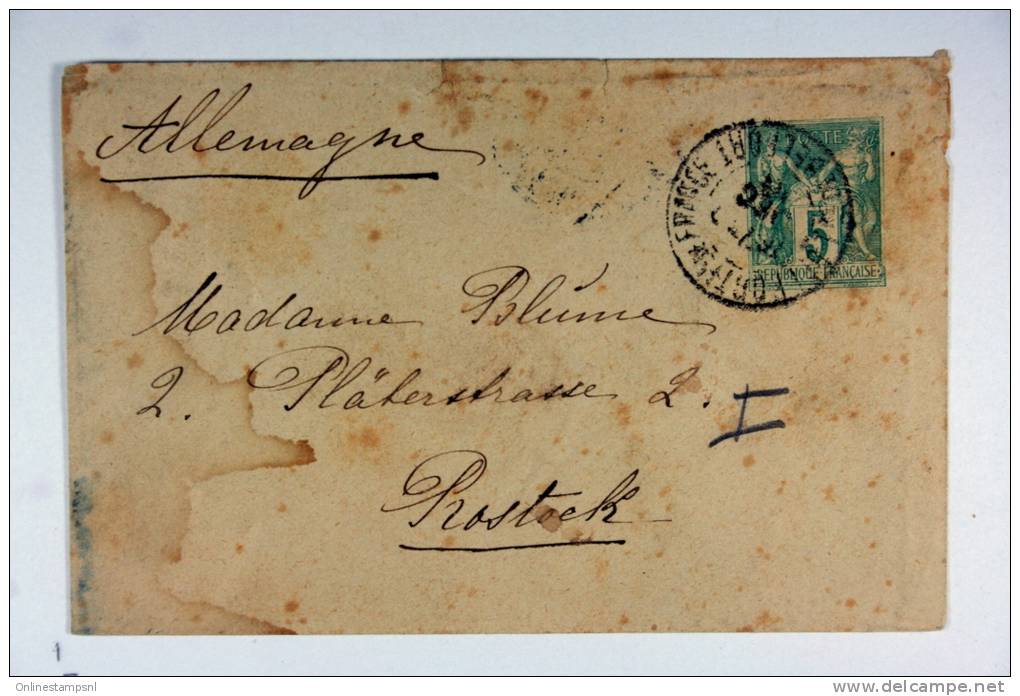 Allemagne
POSTE
5
REPUBLIQUE FRANÇAISE
Madame Blume
2. Pläterstrasse 2. I
Rostock
Onlinestampsnl
www.delcampe.net